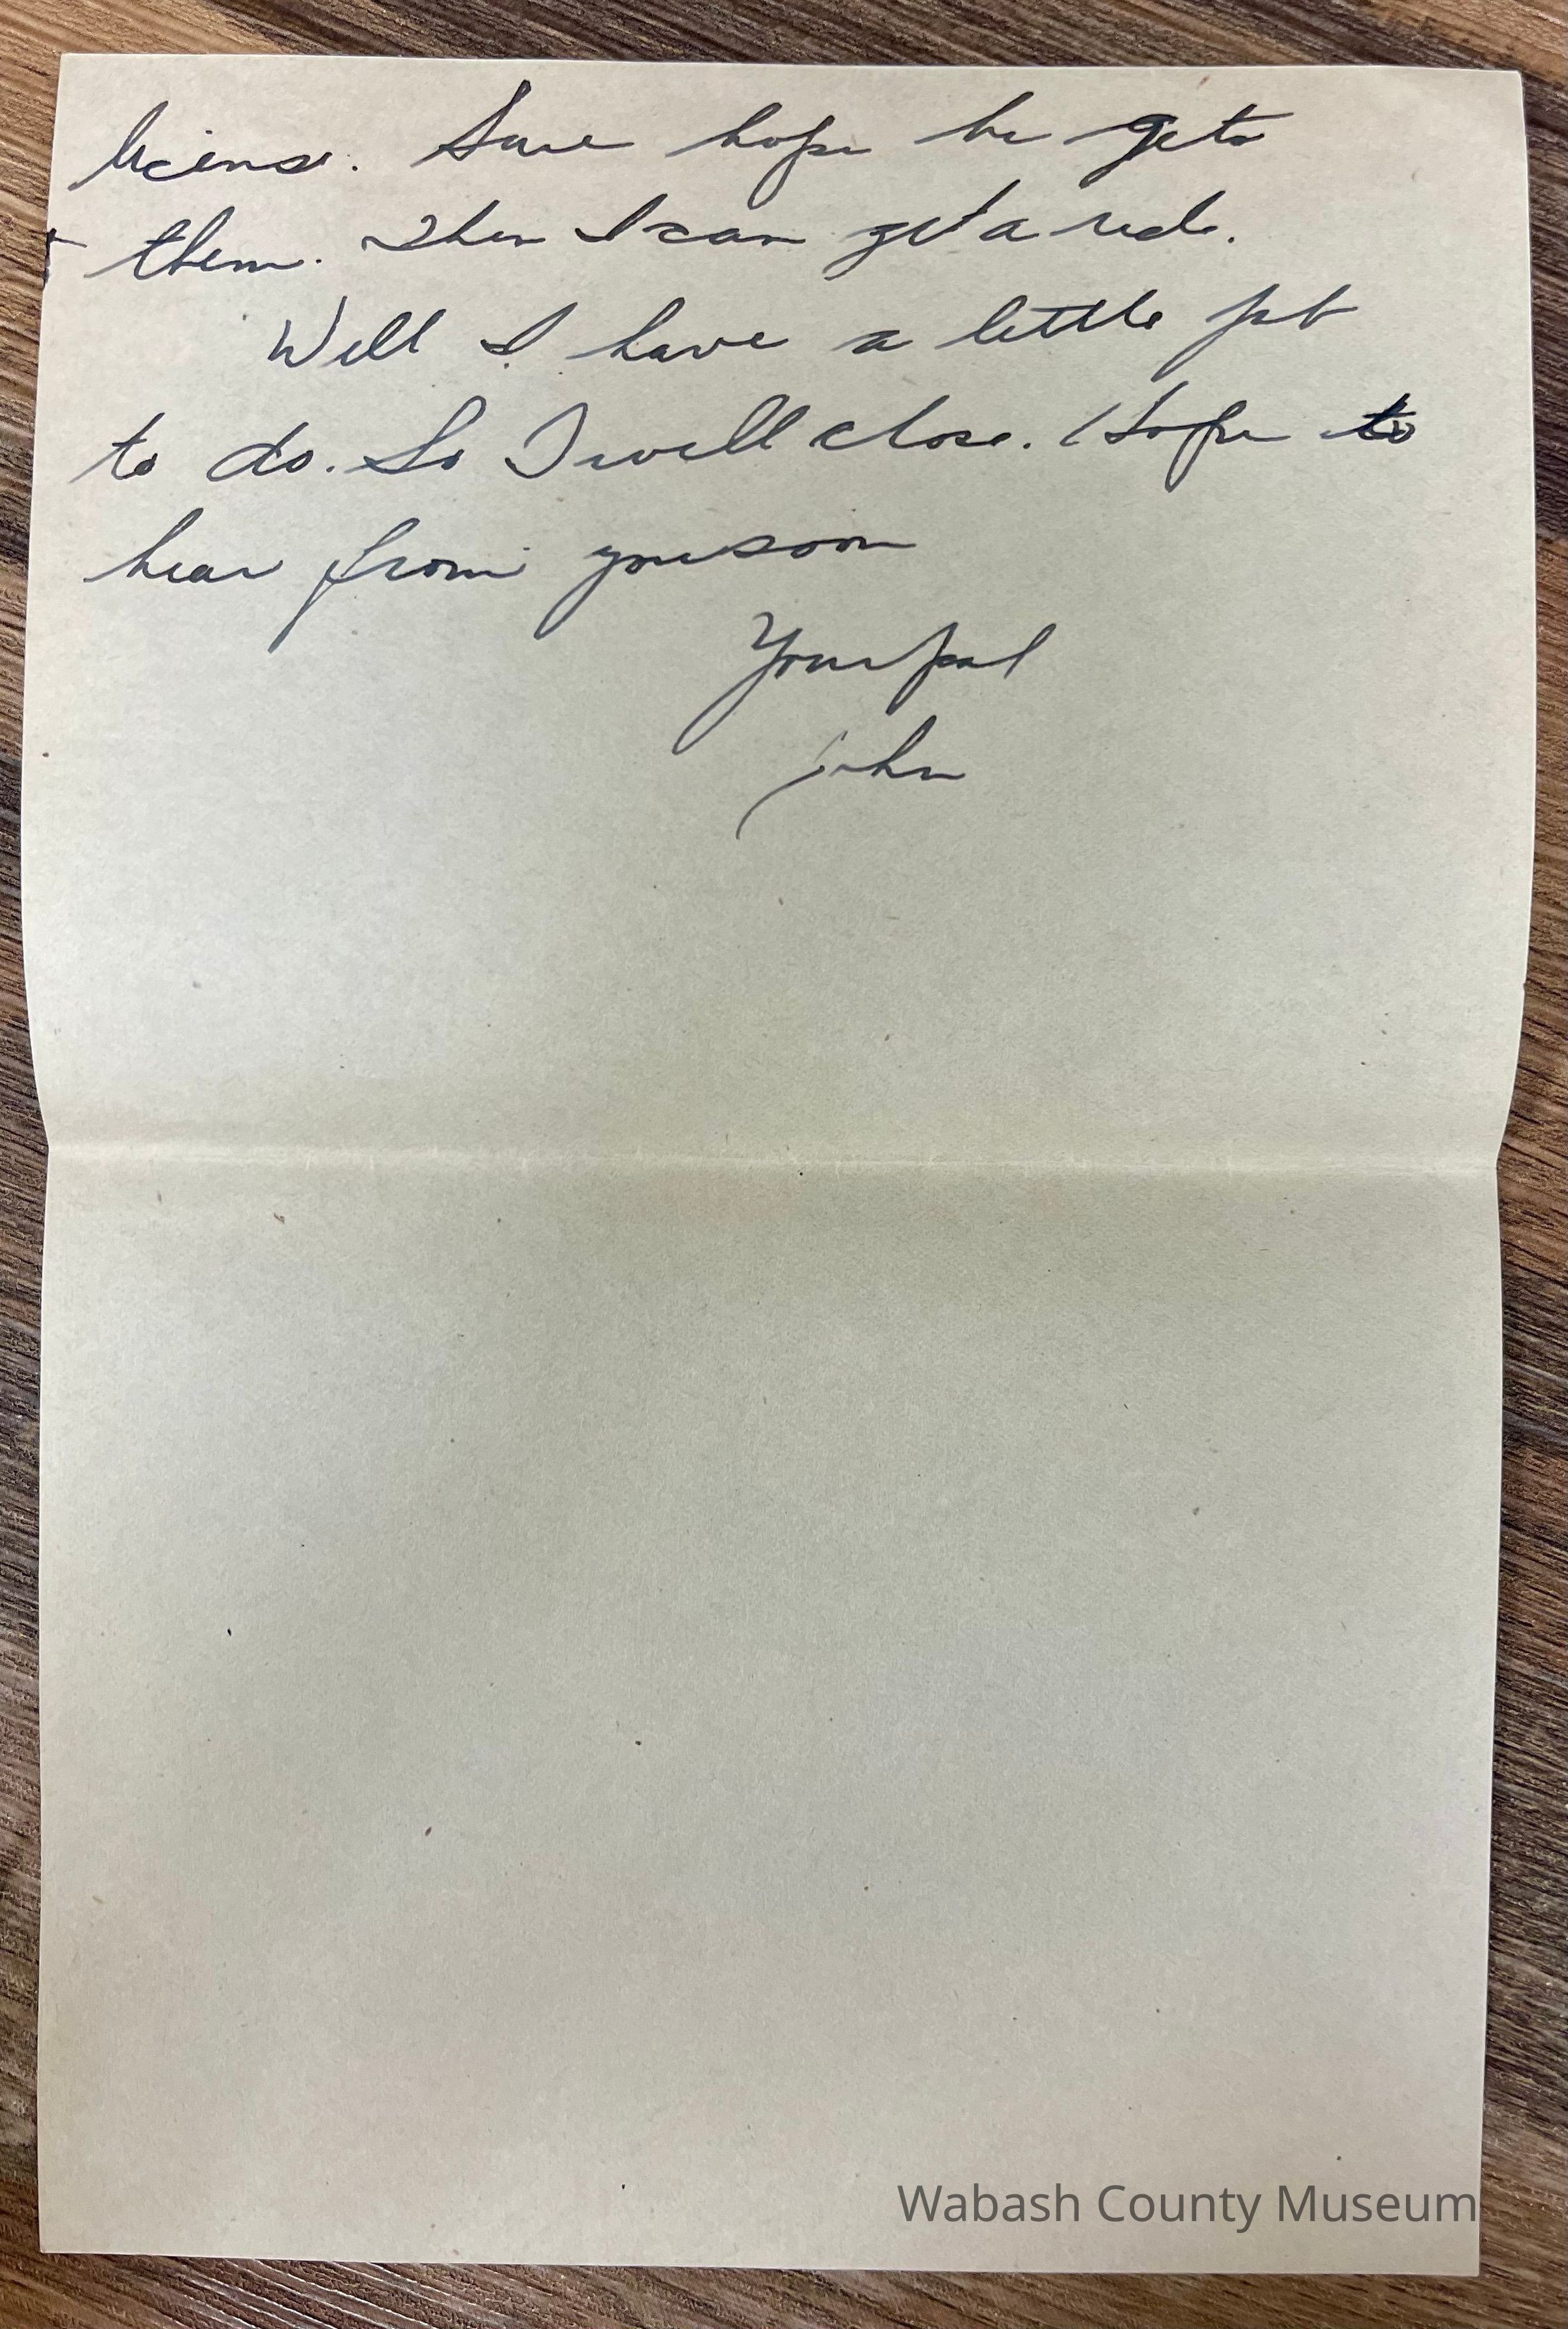 license. Sure hope he gets
them. Then I can get a ride.
Well I have a little job
to do. So I will close. Hope to
hear from you soon
Your pal
John
Wabash County Museum